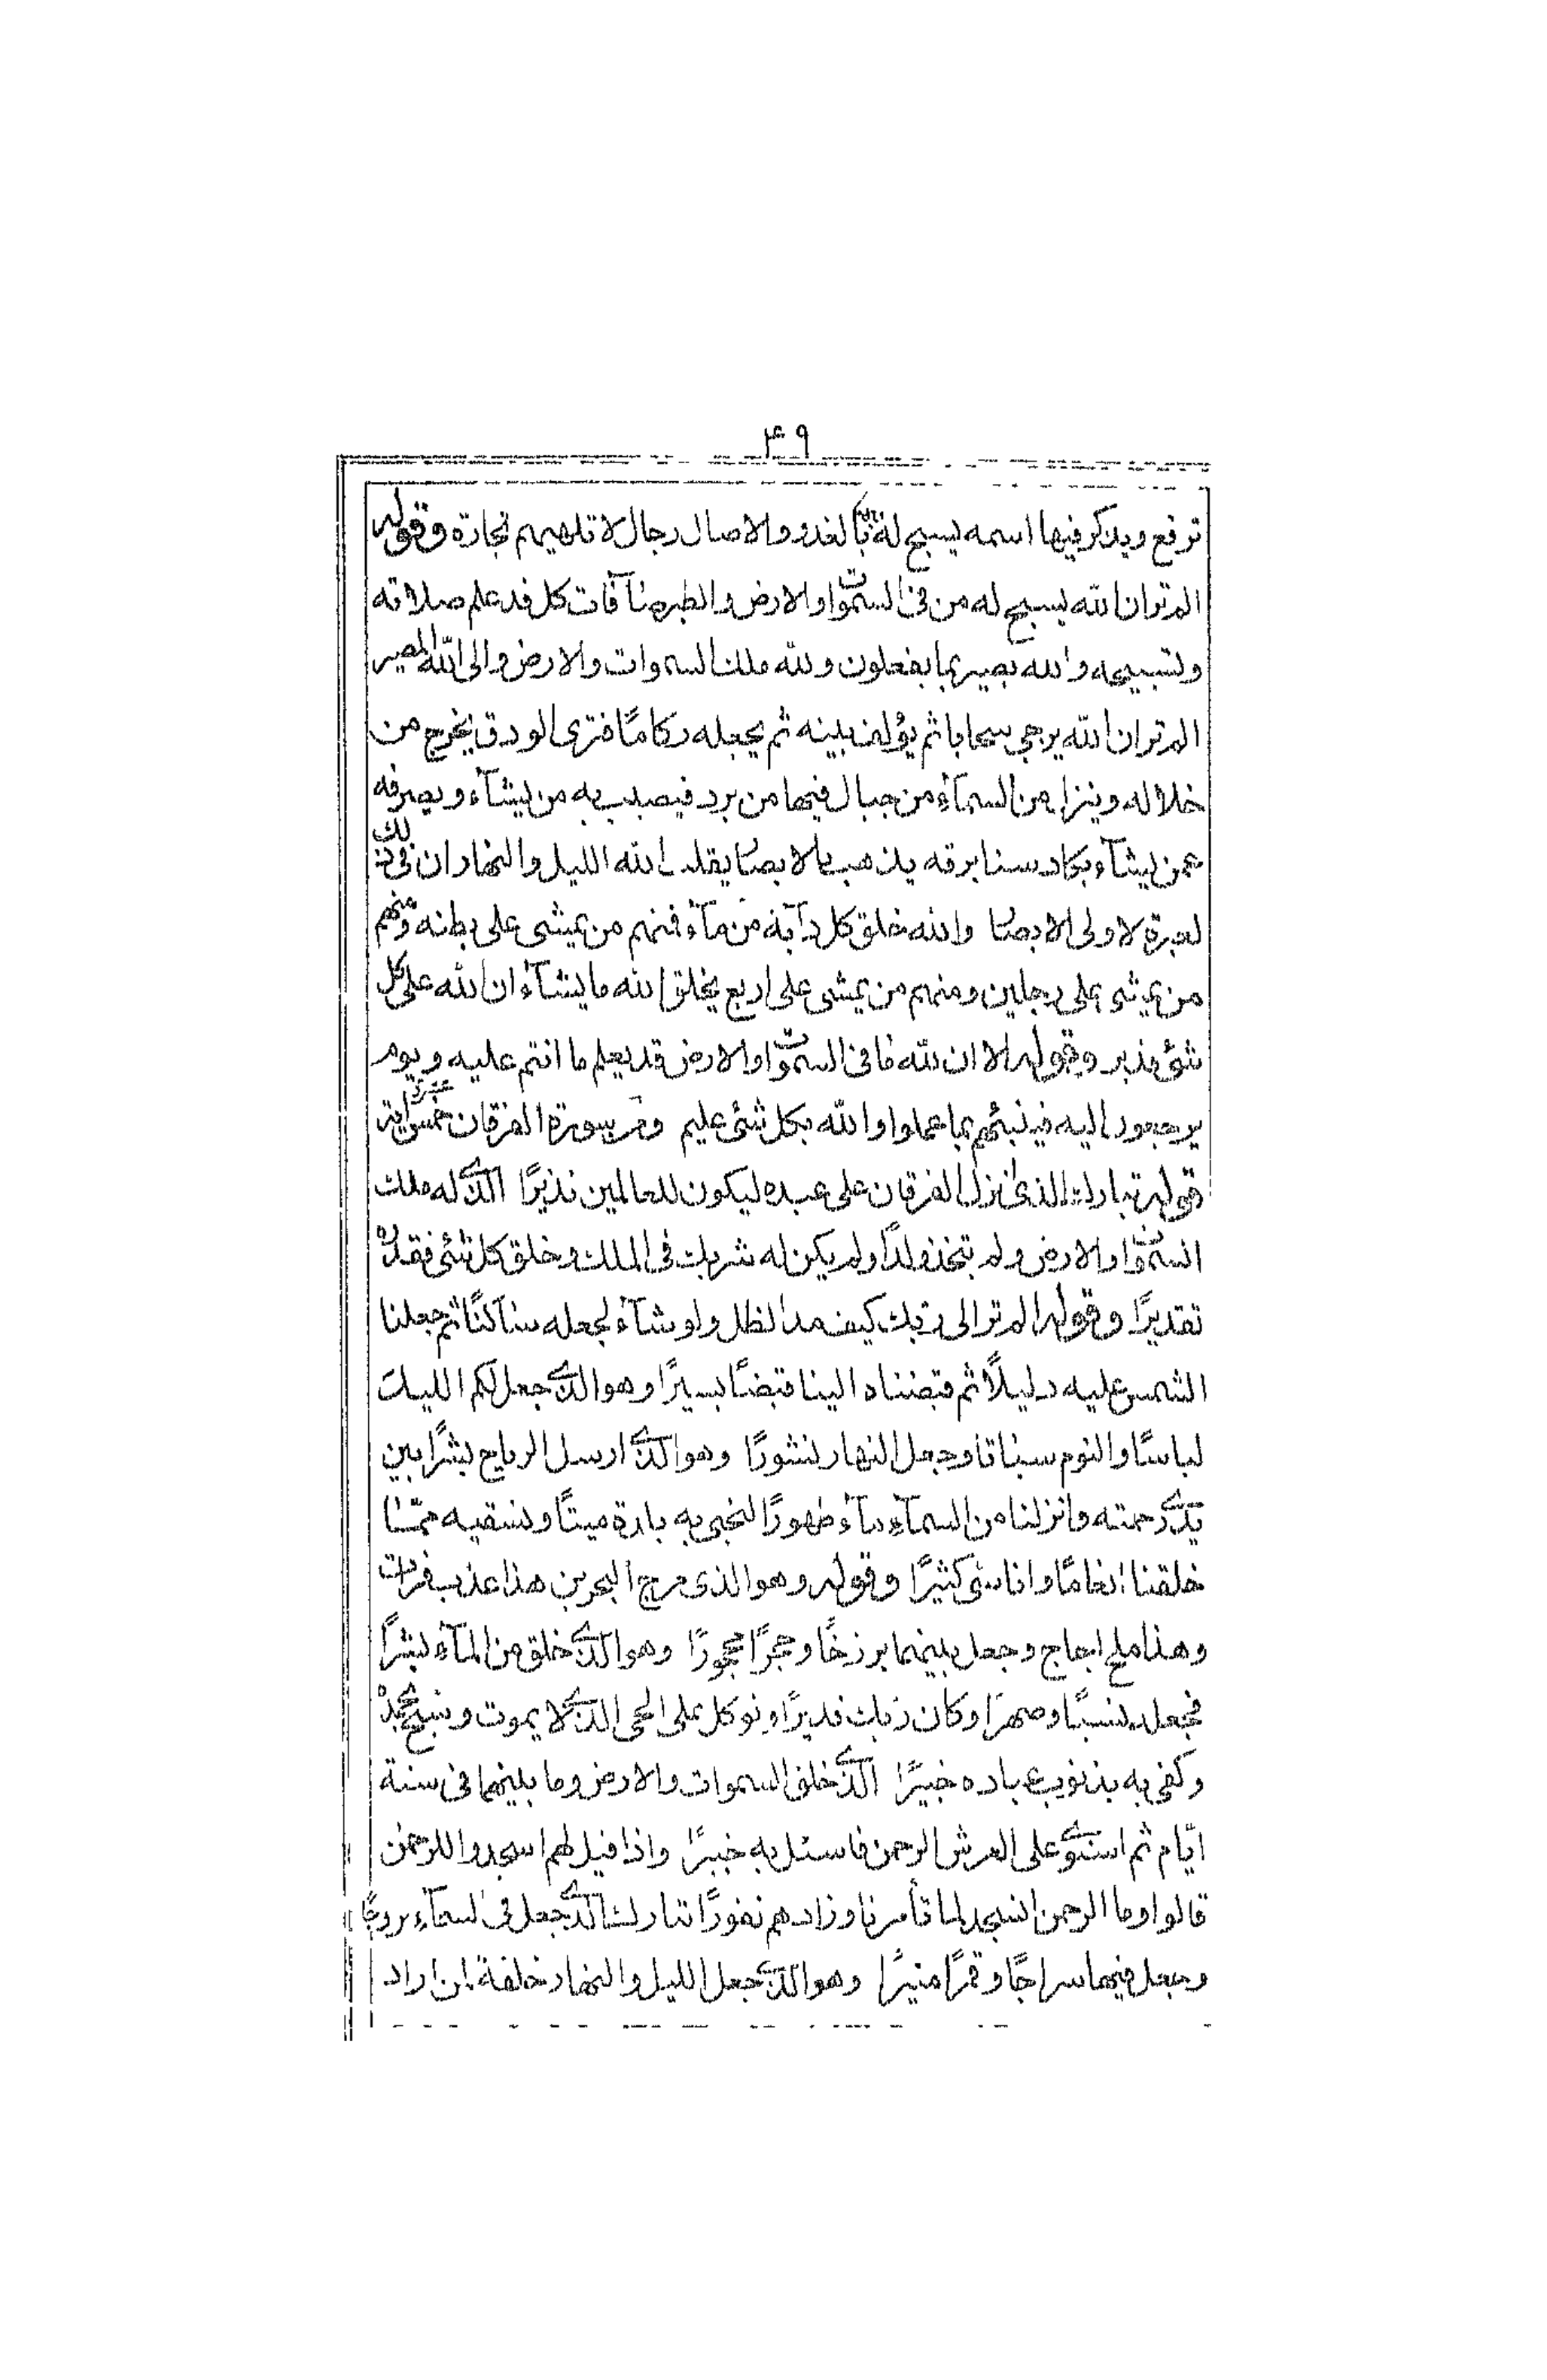 ۴۹
ترفع ويذكر فيها اسمه يسبح له فيها بالغدو والاصال رجال لا تلهيهم تجارة وقوله
الم تر ان الله يسبح له من فى السموات والارض والطير صآفات كل قد علم صلاته
وتسبيحه والله بصير بما يفعلون ولله ملك السموات والارض والى الله المصير
الم تر ان الله يزجى سحابا ثم يؤلف بينه ثم يجعله ركامًا فترى الودق يخرج من
خلاله وينزل من السمآء من جبال فيها من برد فيصيب به من يشآء ويصرفه
عمن يشآء يكاد سنا برقه يذهب بالابصار يقلب الله الليل والنهار ان فى ذلك
لعبرة لاولى الابصار والله خلق كل دآبة من مآء فمنهم من يمشى على بطنه ومنهم
من يمشى على رجلين ومنهم من يمشى على اربع يخلق الله ما يشآء ان الله على كل
شئ قدير وقوله الا ان لله ما فى السموات والارض قد يعلم ما انتم عليه ويوم
يرجعون اليه فينبئهم بما عملوا والله بكل شئ عليم ومن سورة الفرقان خمس عشرة اية
قوله تبارك الذى نزل الفرقان على عبده ليكون للعالمين نذيرًا الذى له ملك
السموات والارض ولم يتخذ ولدًا ولم يكن له شريك فى الملك وخلق كل شئ فقدره
تقديرًا وقوله الم تر الى ربك كيف مد الظل ولو شآء لجعله سآكنًا ثم جعلنا
الشمس عليه دليلًا ثم قبضناه الينا قبضًا يسيرًا وهو الذى جعل لكم الليل
لباسًا والنوم سباتا وجعل النهار نشورًا وهو الذى ارسل الرياح بشرًا بين
يدى رحمته وانزلنا من السمآء مآء طهورًا لنحيى به بلدة ميتًا ونسقيه ممّا
خلقنا انعامًا واناسى كثيرًا وقوله وهو الذى مرج البحرين هذا عذب فرات
وهذا ملح اجاج وجعل بينهما برزخًا وحجرًا محجورًا وهو الذى خلق من المآء بشرًا
فجعله نسبًا وصهرًا وكان ربك قديرًا وتوكل على الحى الذى لا يموت وسبح بحمده
وكفى به بذنوب عباده خبيرًا الذى خلق السموات والارض وما بينهما فى ستة
ايّام ثم استوى على العرش الرحمن فاسئل به خبيرًا واذا قيل لهم اسجدوا للرحمن
قالوا وما الرحمن انسجد لما تأمرنا وزادهم نفورًا تبارك الذى جعل فى السمآء بروجًا
وجعل فيها سراجًا وقمرًا منيرًا وهو الذى جعل الليل والنهار خلفة لمن اراد